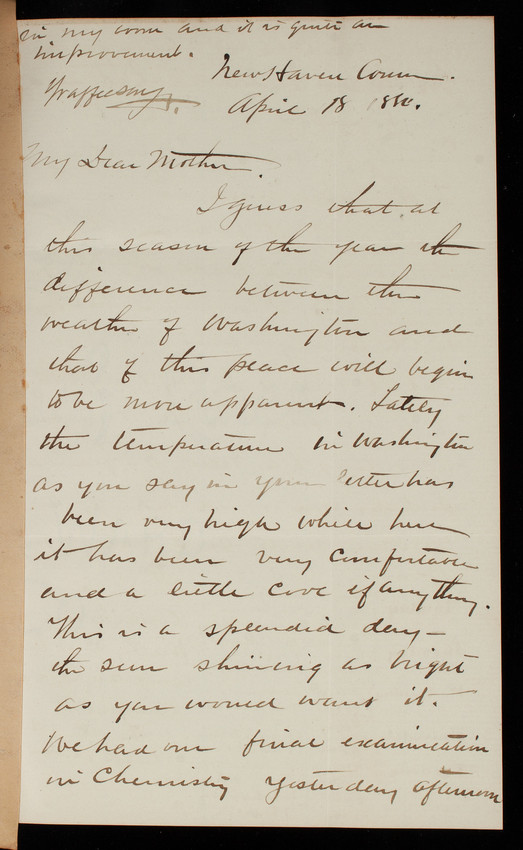 in my room and it is quite an
improvement.
Yr affec son
New Haven Conn.
April 18 1880.
My Dear Mother,
I guess that at
this season of the year the
difference between the
weather of Washington and
that of this place will begin
to be more apparent. Lately
the temperature in Washington
as you say in your letter has
been very high while here
it has been very comfortable
and a little cool if anything.
This is a splendid day—
the sun shining as bright
as you would want it.
We had our final examination
in Chemistry yesterday afternoon